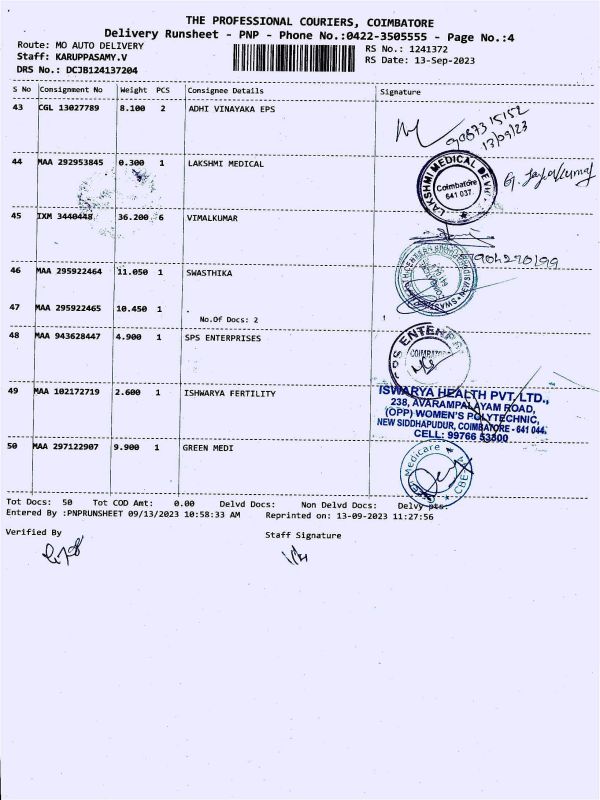 THE PROFESSIONAL COURIERS, COIMBATORE
Delivery Runsheet - PNP - Phone No.:0422-3505555 - Page No.:4
Route: MO AUTO DELIVERY
RS No.: 1241372
Staff: KARUPPASAMY.V
RS Date: 13-Sep-2023
DRS No.: DCJB124137204
S No Consignment No Weight PCS Consignee Details Signature
43 CGL 13027789 8.100 2 ADHI VINAYAKA EPS
13/09/23
44 MAA 292953845 0.300 1 LAKSHMI MEDICAL
LAKSHMI MEDICAL
Coimbatore
641 037.
45 IXM 3440448 36.200 6 VIMALKUMAR
46 MAA 295922464 11.050 1 SWASTHIKA
47 MAA 295922465 10.450 1
No.Of Docs: 2
48 MAA 943628447 4.900 1 SPS ENTERPRISES
49 MAA 102172719 2.600 1 ISHWARYA FERTILITY
ISWARYA HEALTH PVT. LTD.,
238, AVARAMPALAYAM ROAD,
(OPP) WOMEN'S POLYTECHNIC,
NEW SIDDHAPUDUR, COIMBATORE - 641 044.
CELL: 99766 53300
50 MAA 297122907 9.900 1 GREEN MEDI
Medicare
CBE
Tot Docs: 50 Tot COD Amt: 0.00 Delvd Docs: Non Delvd Docs: Delvy pts:
Entered By :PNPRUNSHEET 09/13/2023 10:58:33 AM Reprinted on: 13-09-2023 11:27:56
Verified By
Staff Signature